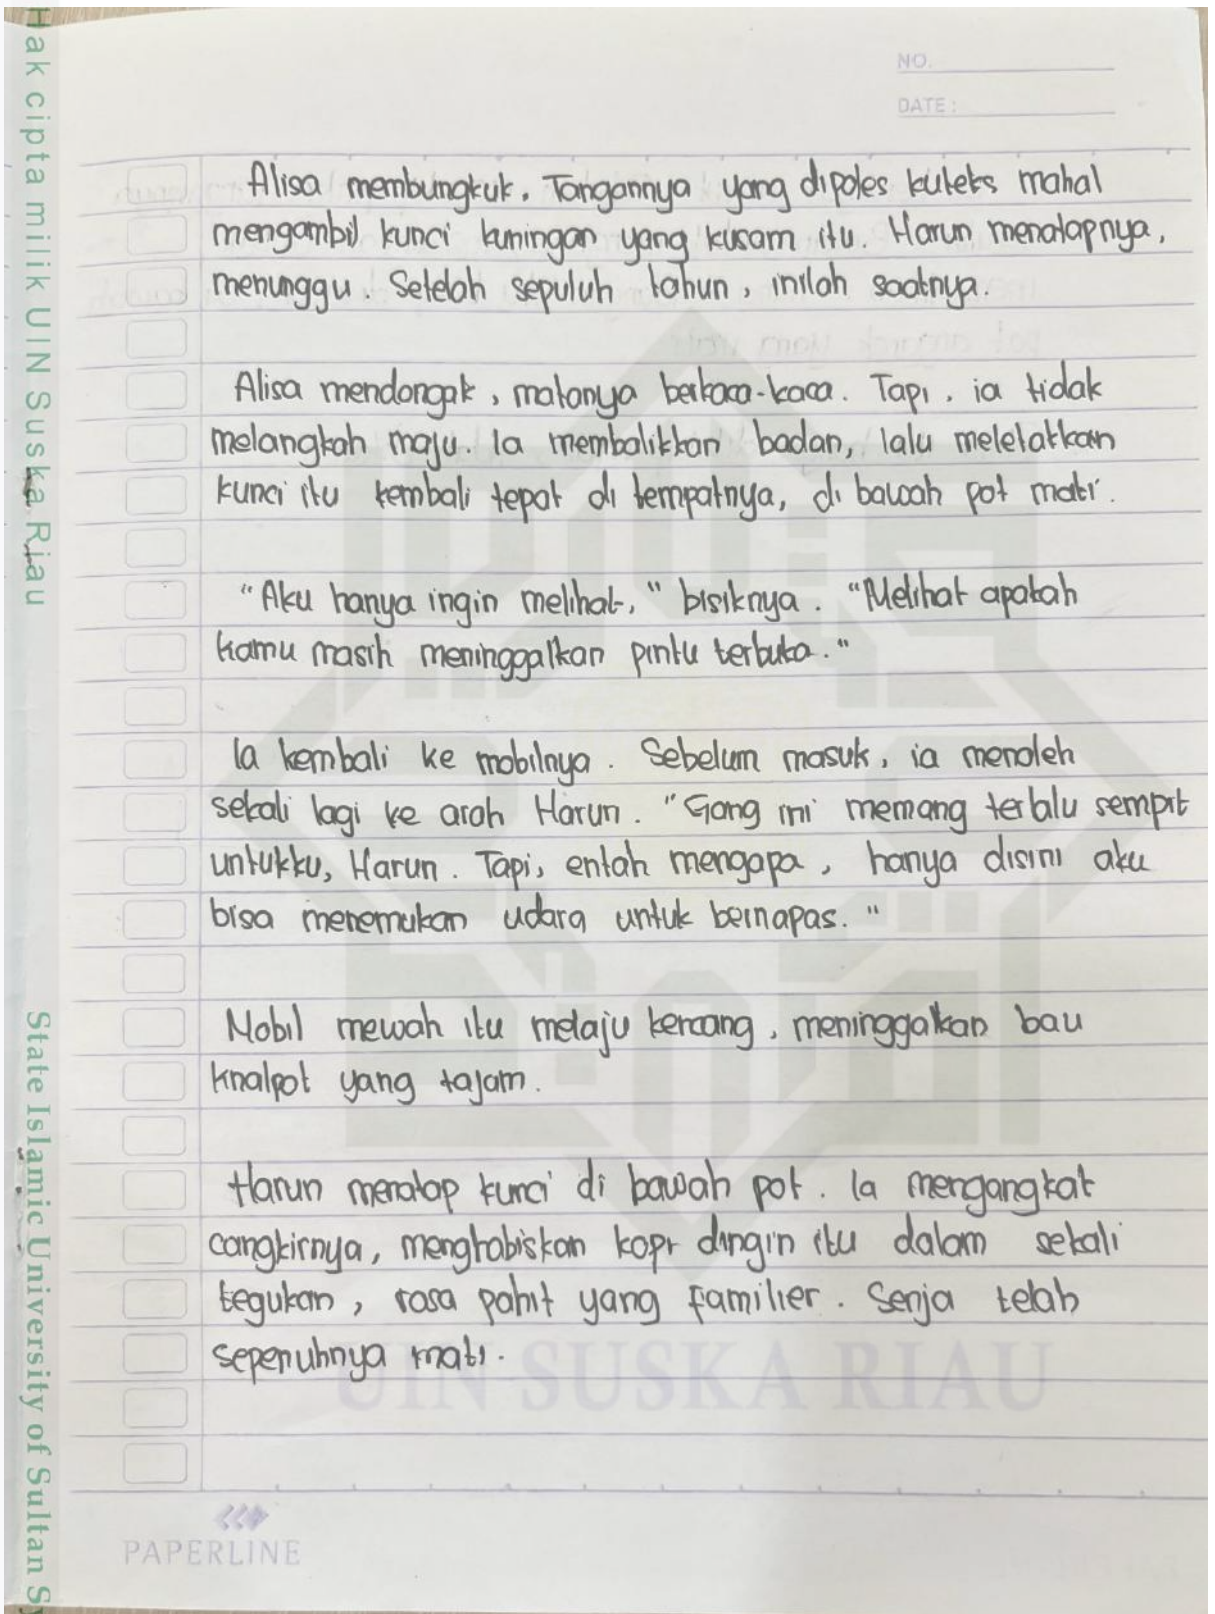 Hak cipta milik UIN Suska Riau
State Islamic University of Sultan S
NO.
DATE :
Alisa membungkuk. Tangannya yang dipoles kuteks mahal
mengambil kunci kuningan yang kusam itu. Harun menatapnya,
menunggu. Setelah sepuluh tahun, inilah saatnya.
Alisa mendongak, matanya berkaca-kaca. Tapi, ia tidak
melangkah maju. Ia membalikkan badan, lalu meletakkan
kunci itu kembali tepat di tempatnya, di bawah pot mati.
"Aku hanya ingin melihat," bisiknya. "Melihat apakah
kamu masih meninggalkan pintu terbuka."
Ia kembali ke mobilnya. Sebelum masuk, ia menoleh
sekali lagi ke arah Harun. "Gang ini memang terlalu sempit
untukku, Harun. Tapi, entah mengapa, hanya disini aku
bisa menemukan udara untuk bernapas."
Mobil mewah itu melaju kencang, meninggalkan bau
knalpot yang tajam.
Harun menatap kunci di bawah pot. Ia mengangkat
cangkirnya, menghabiskan kopi dingin itu dalam sekali
tegukan, rasa pahit yang familier. Senja telah
sepenuhnya mati.
UIN SUSKA RIAU
PAPERLINE